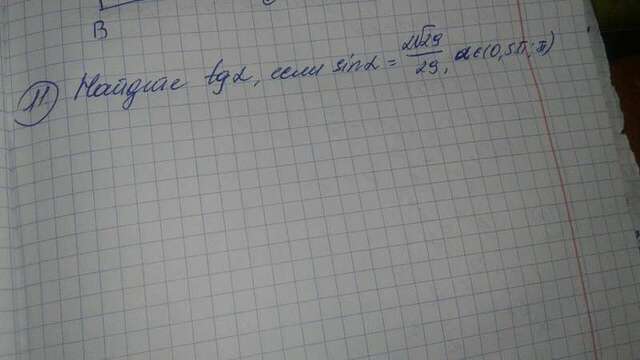 B
11 Найдите tgα, если sinα = 2√29/29, α∈(0,5π; π)